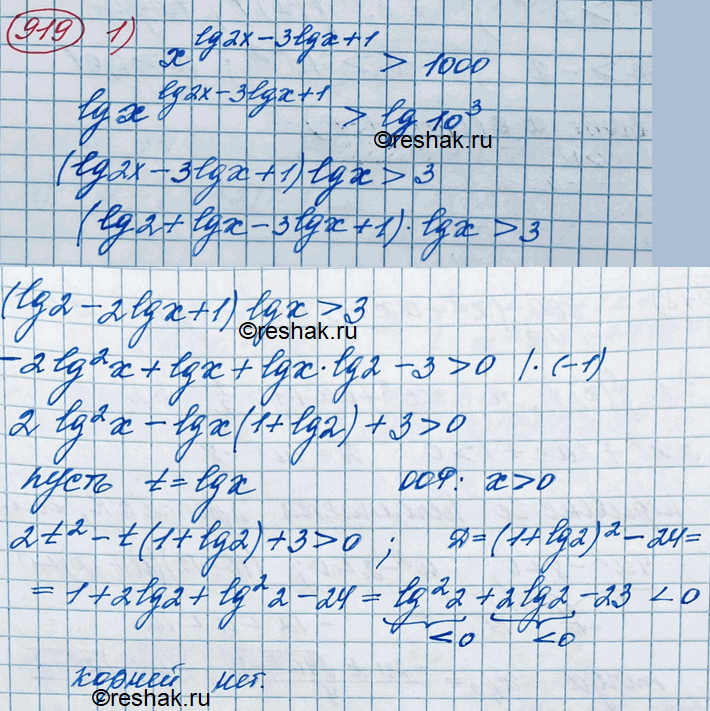 919 1) x^(lg2x-3lgx+1) > 1000
lg x^(lg2x-3lgx+1) > lg 10^3
©reshak.ru
(lg2x-3lgx+1) lgx > 3
(lg2+lgx-3lgx+1)·lgx > 3
(lg2-2lgx+1) lgx > 3
©reshak.ru
-2lg²x+lgx+lgx·lg2-3>0 /·(-1)
2lg²x-lgx(1+lg2)+3>0
пусть t=lgx ООФ: x>0
2t²-t(1+lg2)+3>0; Д=(1+lg2)²-24=
=1+2lg2+lg²2-24=lg²2+2lg2-23<0
<0 <0
корней нет.
©reshak.ru